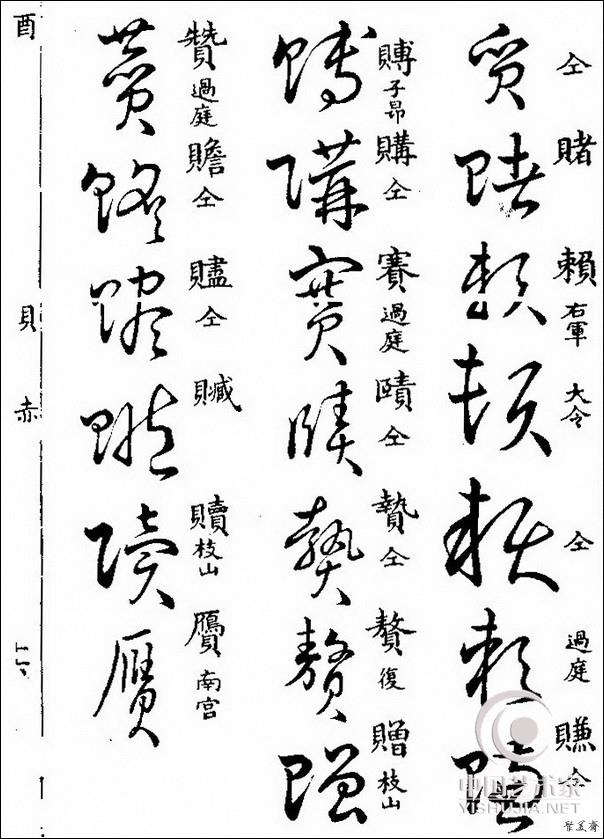 仝 賭 賴 右軍 大令 仝 過庭 賺 仝
賻 子昂 購 仝 賽 過庭 賾 仝 贄 仝 贅 復 贈 枝山
贊 過庭 贍 仝 贐 仝 贓 贖 枝山 贗 南宮
酉 貝 赤
中国艺术家
YISHUJIA.NET